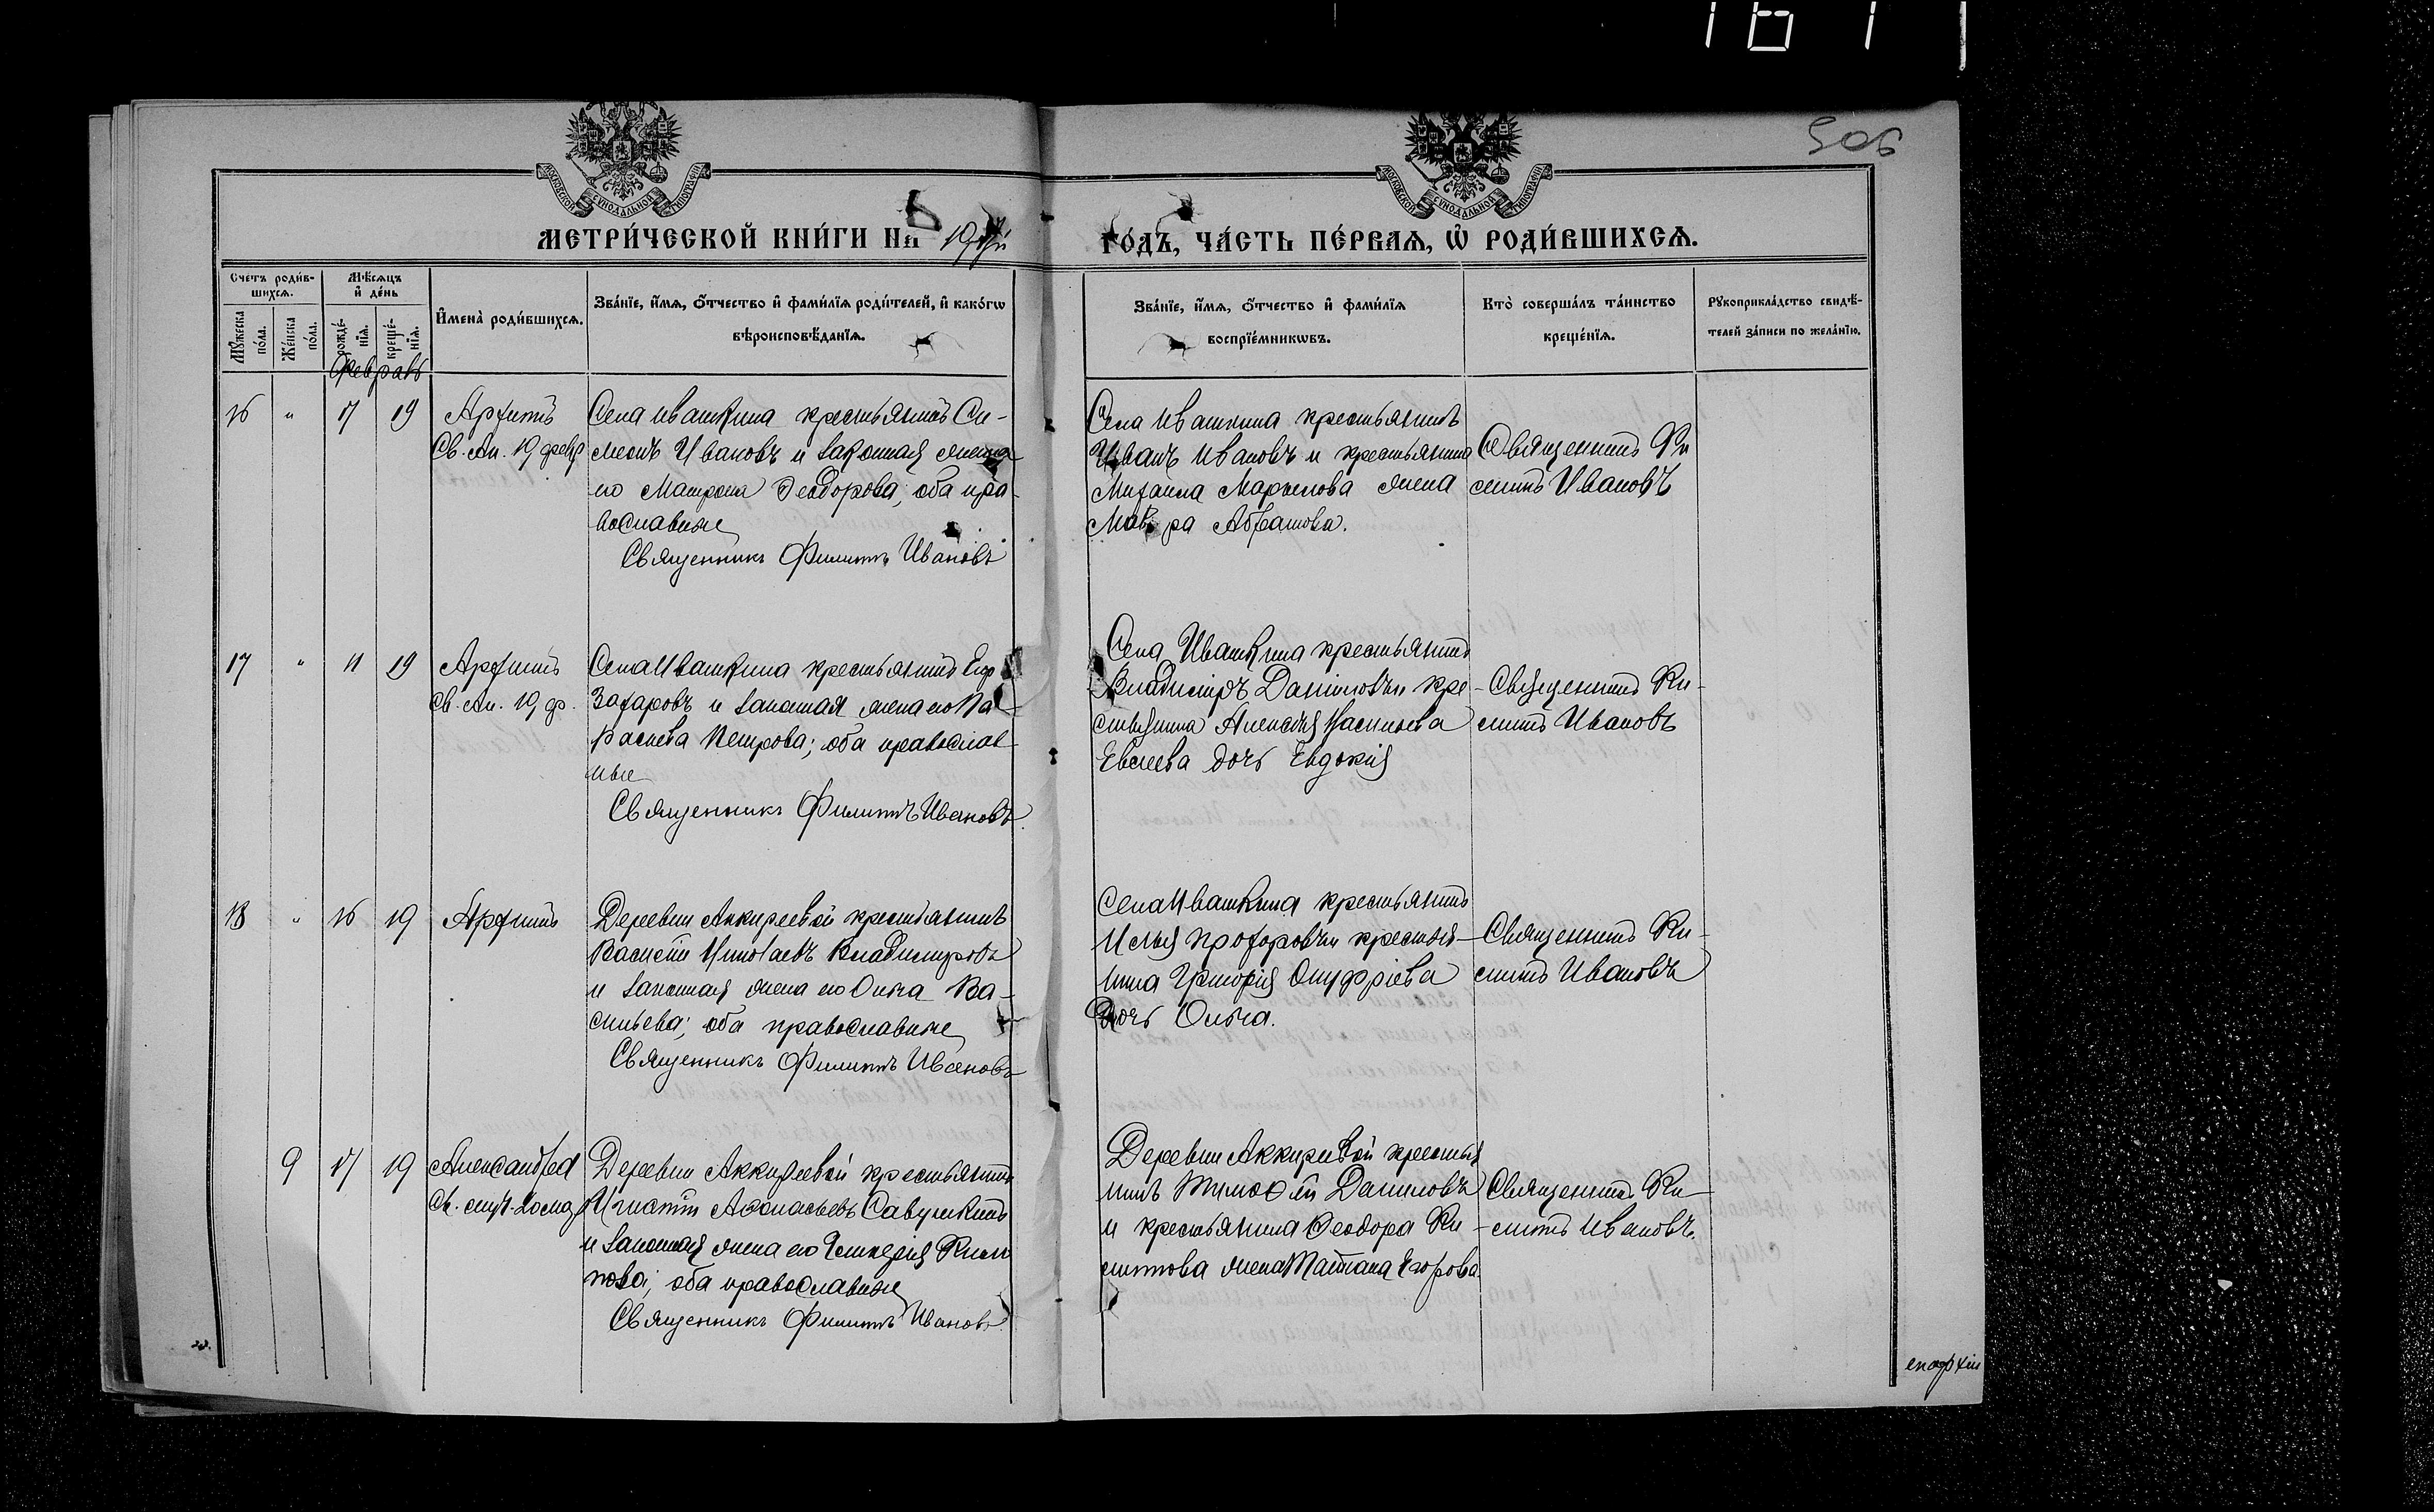 506
МЕТРИЧЕСКОЙ КНИГИ НА
ГОДЪ, ЧАСТЬ ПЕРВАЯ, Ѡ РОДИВШИХСЯ.
Счетъ родив-
шихся.
Мѣсяцъ
и день
Мужеска
пола.
Женска
пола.
рожде-
нія.
креще-
нія.
Имена родившихся.
Званіе, имя, отчество и фамилія родителей, и какогѡ
вѣроисповѣданія.
Званіе, имя, отчество и фамилія
воспріемникѡвъ.
Кто совершалъ таинство
крещенія.
Рукоприкладство свидѣ-
телей записи по желанію.
Февраль
16 " 17 19
Архипъ
Св. Ап. 19 февр
Села Ивашкина крестьянинъ Си-
меонъ Ивановъ и законная жена
его Матрона Ѳеодорова; оба пра-
вославные
Священникъ Филиппъ Ивановъ
Села Ивашкина крестьянинъ
Иванъ Ивановъ и крестьянина
Михаила жена
Мавра
Священникъ Фи
липпъ Ивановъ
17 " 11 19
Архипъ
Св. Ап. 19 ф.
Села Ивашкина крестьянинъ
Захаровъ и законная жена его Па-
раскева Петрова; оба православ
ные
Священникъ Филиппъ Ивановъ
Села Ивашкина крестьянинъ
Владимиръ Даниловъ и кре-
стьянина Васильева
Евсеева дочь Евдокія
Священникъ Фи-
липпъ Ивановъ
18 " 16 19
Архипъ
Деревни Аккиреевой крестьянинъ
Василій Николаевъ Владимировъ
и законная жена его Ольга Ва-
сильева; оба православные
Священникъ Филиппъ Ивановъ
Села Ивашкина крестьянинъ
Илья Прохоровъ и крестья-
нина Григорія Онуфріева
дочь Ольга.
Священникъ Фи-
липпъ Ивановъ
9 17 19
Александра
Св.
Деревни Аккиреевой крестьянинъ
Игнатій Аѳонасьевъ Савушкинъ
и законная жена его Филип
пова; оба православные
Священникъ Филиппъ Ивановъ
Деревни Аккиревой крестья
нинъ Тимоѳей Даниловъ
и крестьянина Ѳеодора Фи-
липпова жена Татіана Егорова
Священникъ Фи-
липпъ Ивановъ.
епархіи